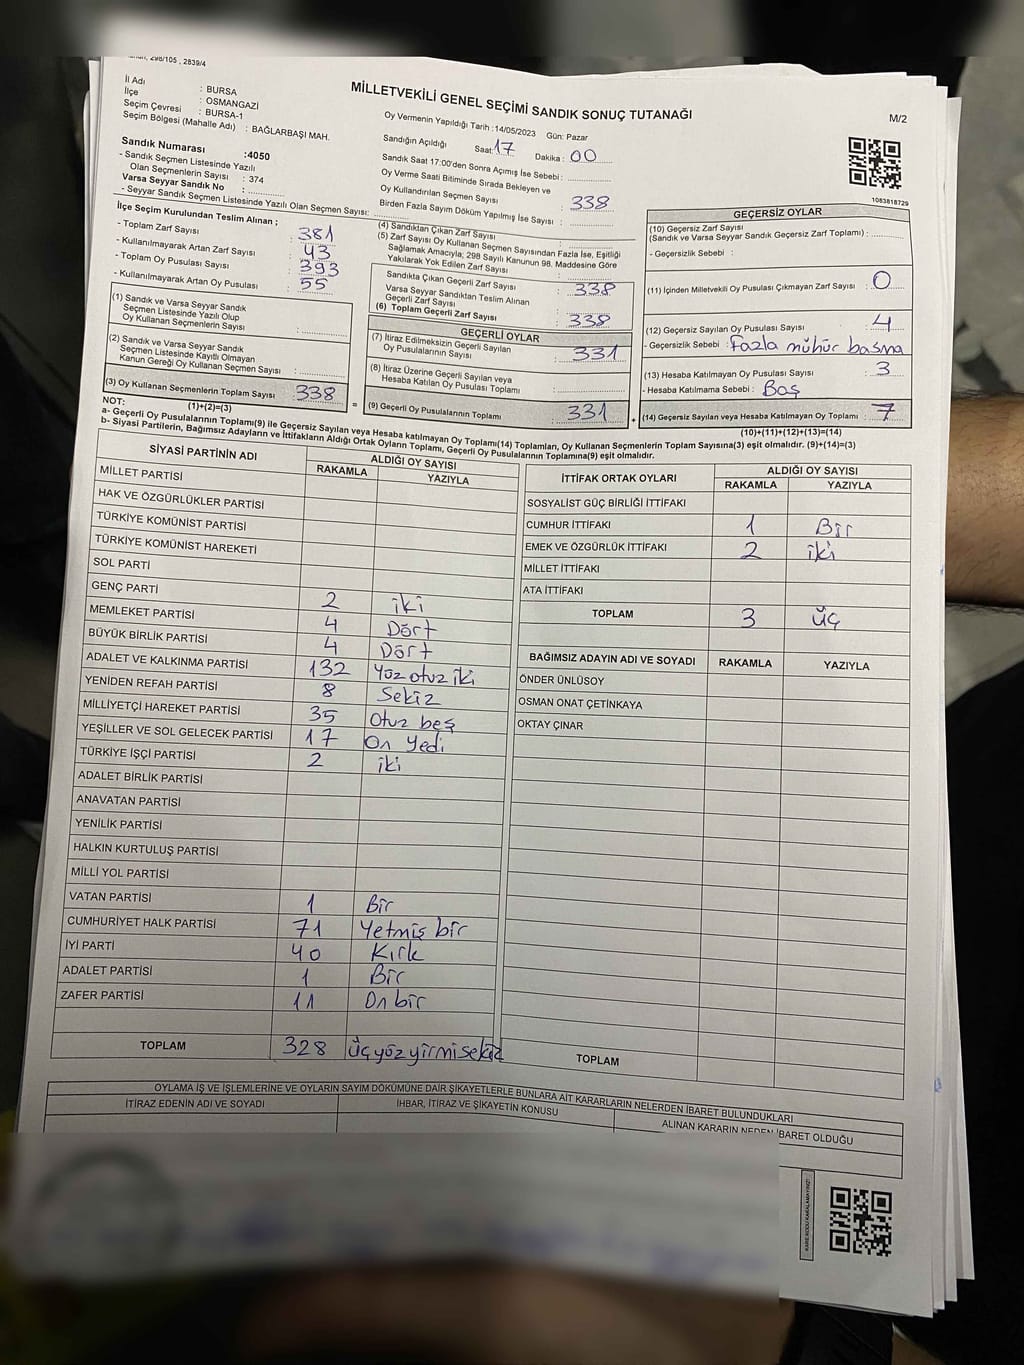 298/105 , 2839/4
İl Adı : BURSA
İlçe : OSMANGAZİ
Seçim Çevresi : BURSA-1
Seçim Bölgesi (Mahalle Adı) : BAĞLARBAŞI MAH.
MİLLETVEKİLİ GENEL SEÇİMİ SANDIK SONUÇ TUTANAĞI
M/2
Oy Vermenin Yapıldığı Tarih :14/05/2023 Gün: Pazar
Sandığın Açıldığı Saat: 17 Dakika : 00
Sandık Saat 17:00'den Sonra Açımış İse Sebebi :
Oy Verme Saati Bitiminde Sırada Bekleyen ve
Oy Kullandırılan Seçmen Sayısı : 338
Birden Fazla Sayım Döküm Yapılmış İse Sayısı :
1083818729
Sandık Numarası :4050
- Sandık Seçmen Listesinde Yazılı
Olan Seçmenlerin Sayısı : 374
Varsa Seyyar Sandık No :
- Seyyar Sandık Seçmen Listesinde Yazılı Olan Seçmen Sayısı:
İlçe Seçim Kurulundan Teslim Alınan ;
- Toplam Zarf Sayısı : 381
- Kullanılmayarak Artan Zarf Sayısı : 43
- Toplam Oy Pusulası Sayısı : 393
- Kullanılmayarak Artan Oy Pusulası : 55
(1) Sandık ve Varsa Seyyar Sandık
Seçmen Listesinde Yazılı Olup
Oy Kullanan Seçmenlerin Sayısı :
(2) Sandık ve Varsa Seyyar Sandık
Seçmen Listesinde Kayıtlı Olmayan
Kanun Gereği Oy Kullanan Seçmen Sayısı :
(3) Oy Kullanan Seçmenlerin Toplam Sayısı : 338
(1)+(2)=(3)
(4) Sandıktan Çıkan Zarf Sayısı :
(5) Zarf Sayısı Oy Kullanan Seçmen Sayısından Fazla İse, Eşitliği
Sağlamak Amacıyla; 298 Sayılı Kanunun 98. Maddesine Göre
Yakılarak Yok Edilen Zarf Sayısı :
Sandıkta Çıkan Geçerli Zarf Sayısı : 338
Varsa Seyyar Sandıktan Teslim Alınan
Geçerli Zarf Sayısı :
(6) Toplam Geçerli Zarf Sayısı : 338
GEÇERLİ OYLAR
(7) İtiraz Edilmeksizin Geçerli Sayılan
Oy Pusulalarının Sayısı : 331
(8) İtiraz Üzerine Geçerli Sayılan veya
Hesaba Katılan Oy Pusulası Toplamı :
= (9) Geçerli Oy Pusulalarının Toplamı : 331 +
GEÇERSİZ OYLAR
(10) Geçersiz Zarf Sayısı
(Sandık ve Varsa Seyyar Sandık Geçersiz Zarf Toplamı) :
- Geçersizlik Sebebi :
(11) İçinden Milletvekili Oy Pusulası Çıkmayan Zarf Sayısı : 0
(12) Geçersiz Sayılan Oy Pusulası Sayısı : 4
- Geçersizlik Sebebi : Fazla mühür basma
(13) Hesaba Katılmayan Oy Pusulası Sayısı : 3
- Hesaba Katılmama Sebebi : Boş
(14) Geçersiz Sayılan veya Hesaba Katılmayan Oy Toplamı : 7
(10)+(11)+(12)+(13)=(14)
NOT:
a- Geçerli Oy Pusulalarının Toplamı(9) ile Geçersiz Sayılan veya Hesaba katılmayan Oy Toplamı(14) Toplamları, Oy Kullanan Seçmenlerin Toplam Sayısına(3) eşit olmalıdır. (9)+(14)=(3)
b- Siyasi Partilerin, Bağımsız Adayların ve İttifakların Aldığı Ortak Oyların Toplamı, Geçerli Oy Pusulalarının Toplamına(9) eşit olmalıdır.
SİYASİ PARTİNİN ADI ALDIĞI OY SAYISI
RAKAMLA YAZIYLA
MİLLET PARTİSİ
HAK VE ÖZGÜRLÜKLER PARTİSİ
TÜRKİYE KOMÜNİST PARTİSİ
TÜRKİYE KOMÜNİST HAREKETİ
SOL PARTİ
GENÇ PARTİ 2 iki
MEMLEKET PARTİSİ 4 Dört
BÜYÜK BİRLİK PARTİSİ 4 Dört
ADALET VE KALKINMA PARTİSİ 132 Yüz otuz iki
YENİDEN REFAH PARTİSİ 8 Sekiz
MİLLİYETÇİ HAREKET PARTİSİ 35 Otuz beş
YEŞİLLER VE SOL GELECEK PARTİSİ 17 On Yedi
TÜRKİYE İŞÇİ PARTİSİ 2 iki
ADALET BİRLİK PARTİSİ
ANAVATAN PARTİSİ
YENİLİK PARTİSİ
HALKIN KURTULUŞ PARTİSİ
MİLLİ YOL PARTİSİ
VATAN PARTİSİ 1 Bir
CUMHURİYET HALK PARTİSİ 71 Yetmiş bir
İYİ PARTİ 40 Kırk
ADALET PARTİSİ 1 Bir
ZAFER PARTİSİ 11 On bir
TOPLAM 328 üçyüzyirmisekiz
İTTİFAK ORTAK OYLARI ALDIĞI OY SAYISI
RAKAMLA YAZIYLA
SOSYALİST GÜÇ BİRLİĞİ İTTİFAKI
CUMHUR İTTİFAKI 1 Bir
EMEK VE ÖZGÜRLÜK İTTİFAKI 2 iki
MİLLET İTTİFAKI
ATA İTTİFAKI
TOPLAM 3 üç
BAĞIMSIZ ADAYIN ADI VE SOYADI RAKAMLA YAZIYLA
ÖNDER ÜNLÜSOY
OSMAN ONAT ÇETİNKAYA
OKTAY ÇINAR
TOPLAM
OYLAMA İŞ VE İŞLEMLERİNE VE OYLARIN SAYIM DÖKÜMÜNE DAİR ŞİKAYETLERLE BUNLARA AİT KARARLARIN NELERDEN İBARET BULUNDUKLARI
İTİRAZ EDENİN ADI VE SOYADI İHBAR, İTİRAZ VE ŞİKAYETİN KONUSU ALINAN KARARIN NEDEN İBARET OLDUĞU
KARE KODU KARALAMAYINIZ!